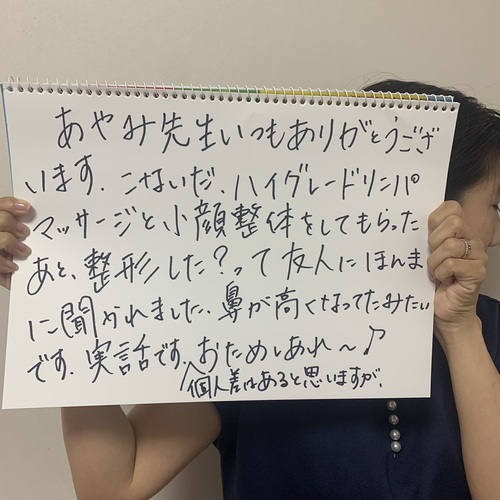 あやみ先生いつもありがとうござ
います。こないだ、ハイグレードリンパ
マッサージと小顔整体をしてもらった
あと、整形した？って友人にほんま
に聞かれました。鼻が高くなってたみたい
です。実話です。おためしあれ〜♪
個人差はあると思いますが、